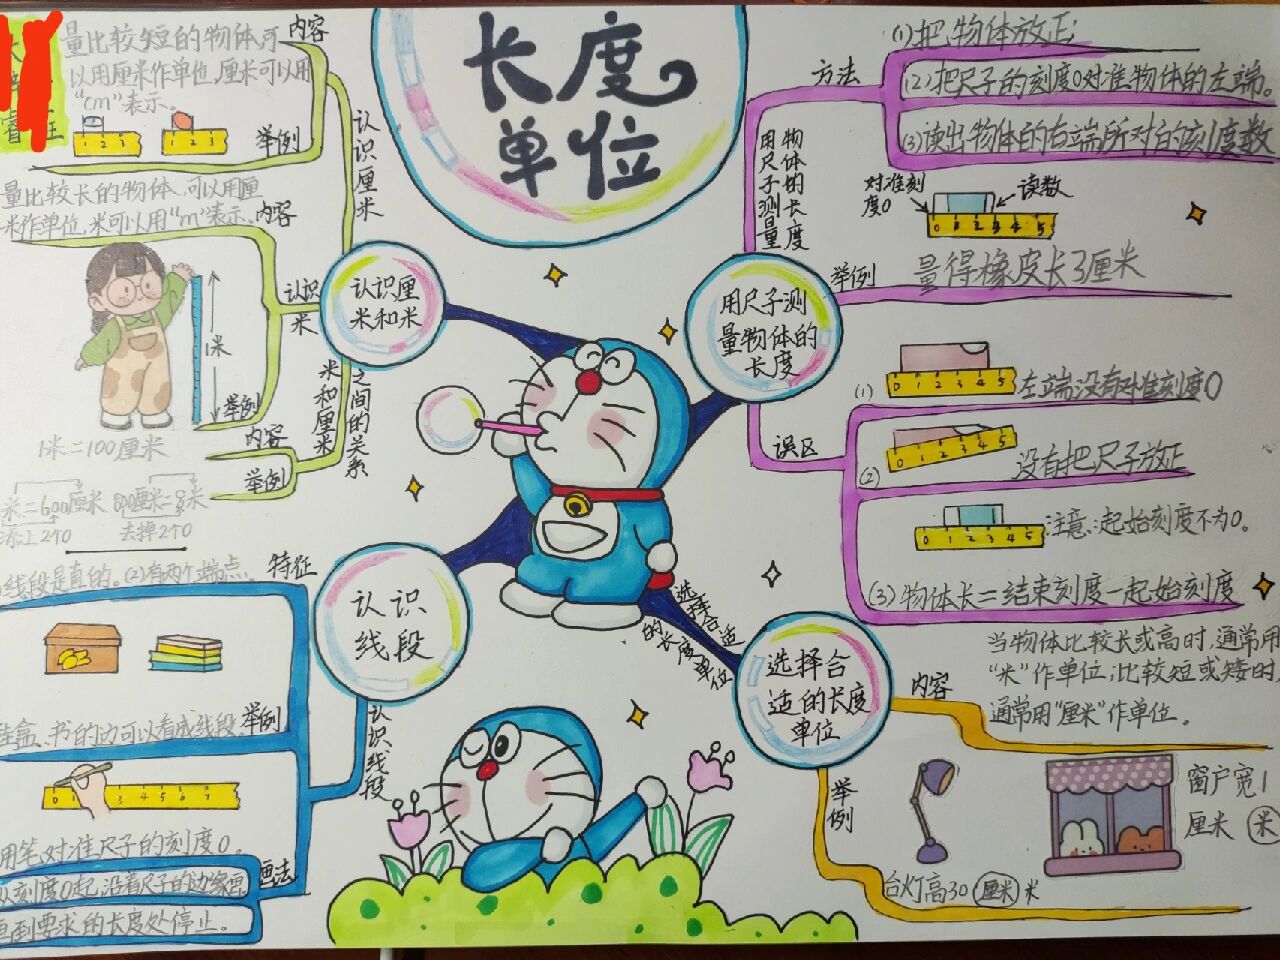 长度
单位
内容
量比较短的物体,可
以用厘米作单位,厘米可以用
“cm”表示。
1 2 3
1 2 3
举例
认识厘米
量比较长的物体,可以用厘
米作单位,米可以用“m”表示。
内容
认识
米
1米
举例
1米=100厘米
内容
举例
米=600厘米 800厘米=8米
添上2个0 去掉2个0
米和厘米
之间的关系
认识厘
米和米
线段是直的。(2)有两个端点。
特征
盒、书的边可以看成线段。
举例
0 3 4 5 6 7
用笔对准尺子的刻度0。
从刻度0起,沿着尺子的边缘画
画到要求的长度处停止。
画法
认识线段
认识
线段
用尺子测
量物体的
长度
用尺子测量
物体的长度
方法
(1)把物体放正;
(2)把尺子的刻度0对准物体的左端。
(3)读出物体的右端所对的刻度数
对准刻
度0
读数
0 1 2 3 4 5
举例
量得橡皮长3厘米
误区
(1)
0 1 2 3 4 5
左端没有对准刻度0
(2)
0 1 2 3 4 5
没有把尺子放正
0 1 2 3 4 5
注意:起始刻度不为0。
(3)物体长=结束刻度-起始刻度
选择合适
的长度单位
选择合
适的长度
单位
内容
当物体比较长或高时,通常用
“米”作单位;比较短或矮时,
通常用“厘米”作单位。
举例
台灯高30 厘米 米
窗户宽1
厘米 米